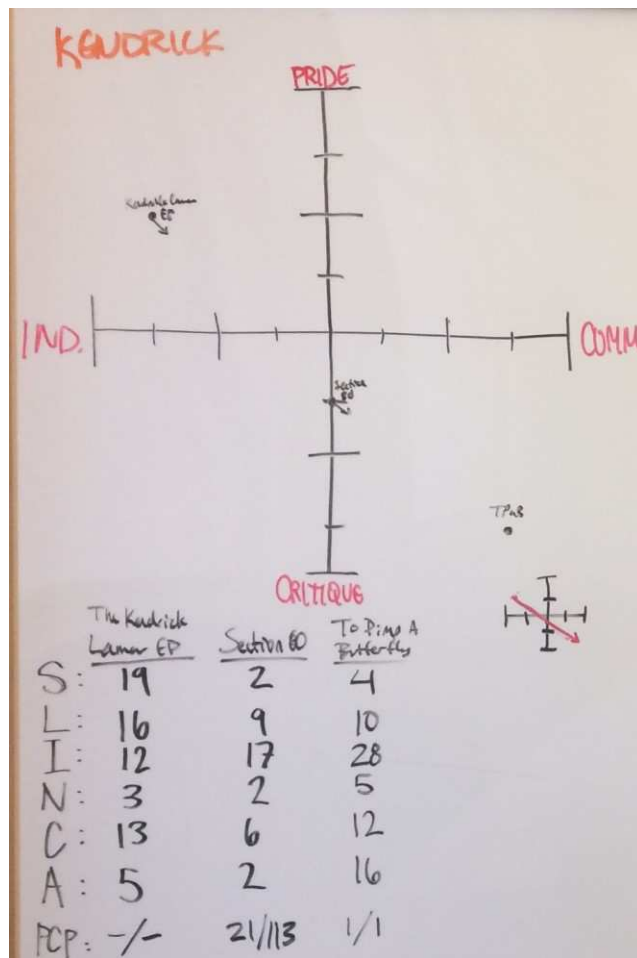 KENDRICK
PRIDE
Kendrick Lamar
EP
IND.
COMM
Section
80
TPaB
CRITIQUE
The Kendrick Lamar EP
Section 80
To Pimp A Butterfly
S: 19 2 4
L: 16 9 10
I: 12 17 28
N: 3 2 5
C: 13 6 12
A: 5 2 16
PCP: -/- 21/113 1/1